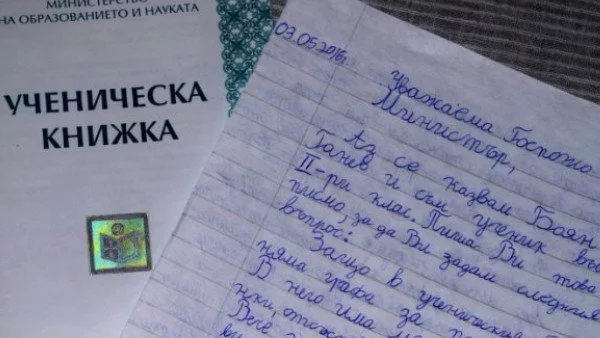 МИНИСТЕРСТВО
НА ОБРАЗОВАНИЕТО И НАУКАТА
УЧЕНИЧЕСКА
КНИЖКА
03.05.2016г.
Уважаема Госпожо
Министър,
Аз се казвам Боян
Ганев и съм ученик във
II-ри клас. Пиша Ви това
писмо, за да Ви задам следния
въпрос:
Защо в ученическия
няма графа за
В него има
неки,
Вече